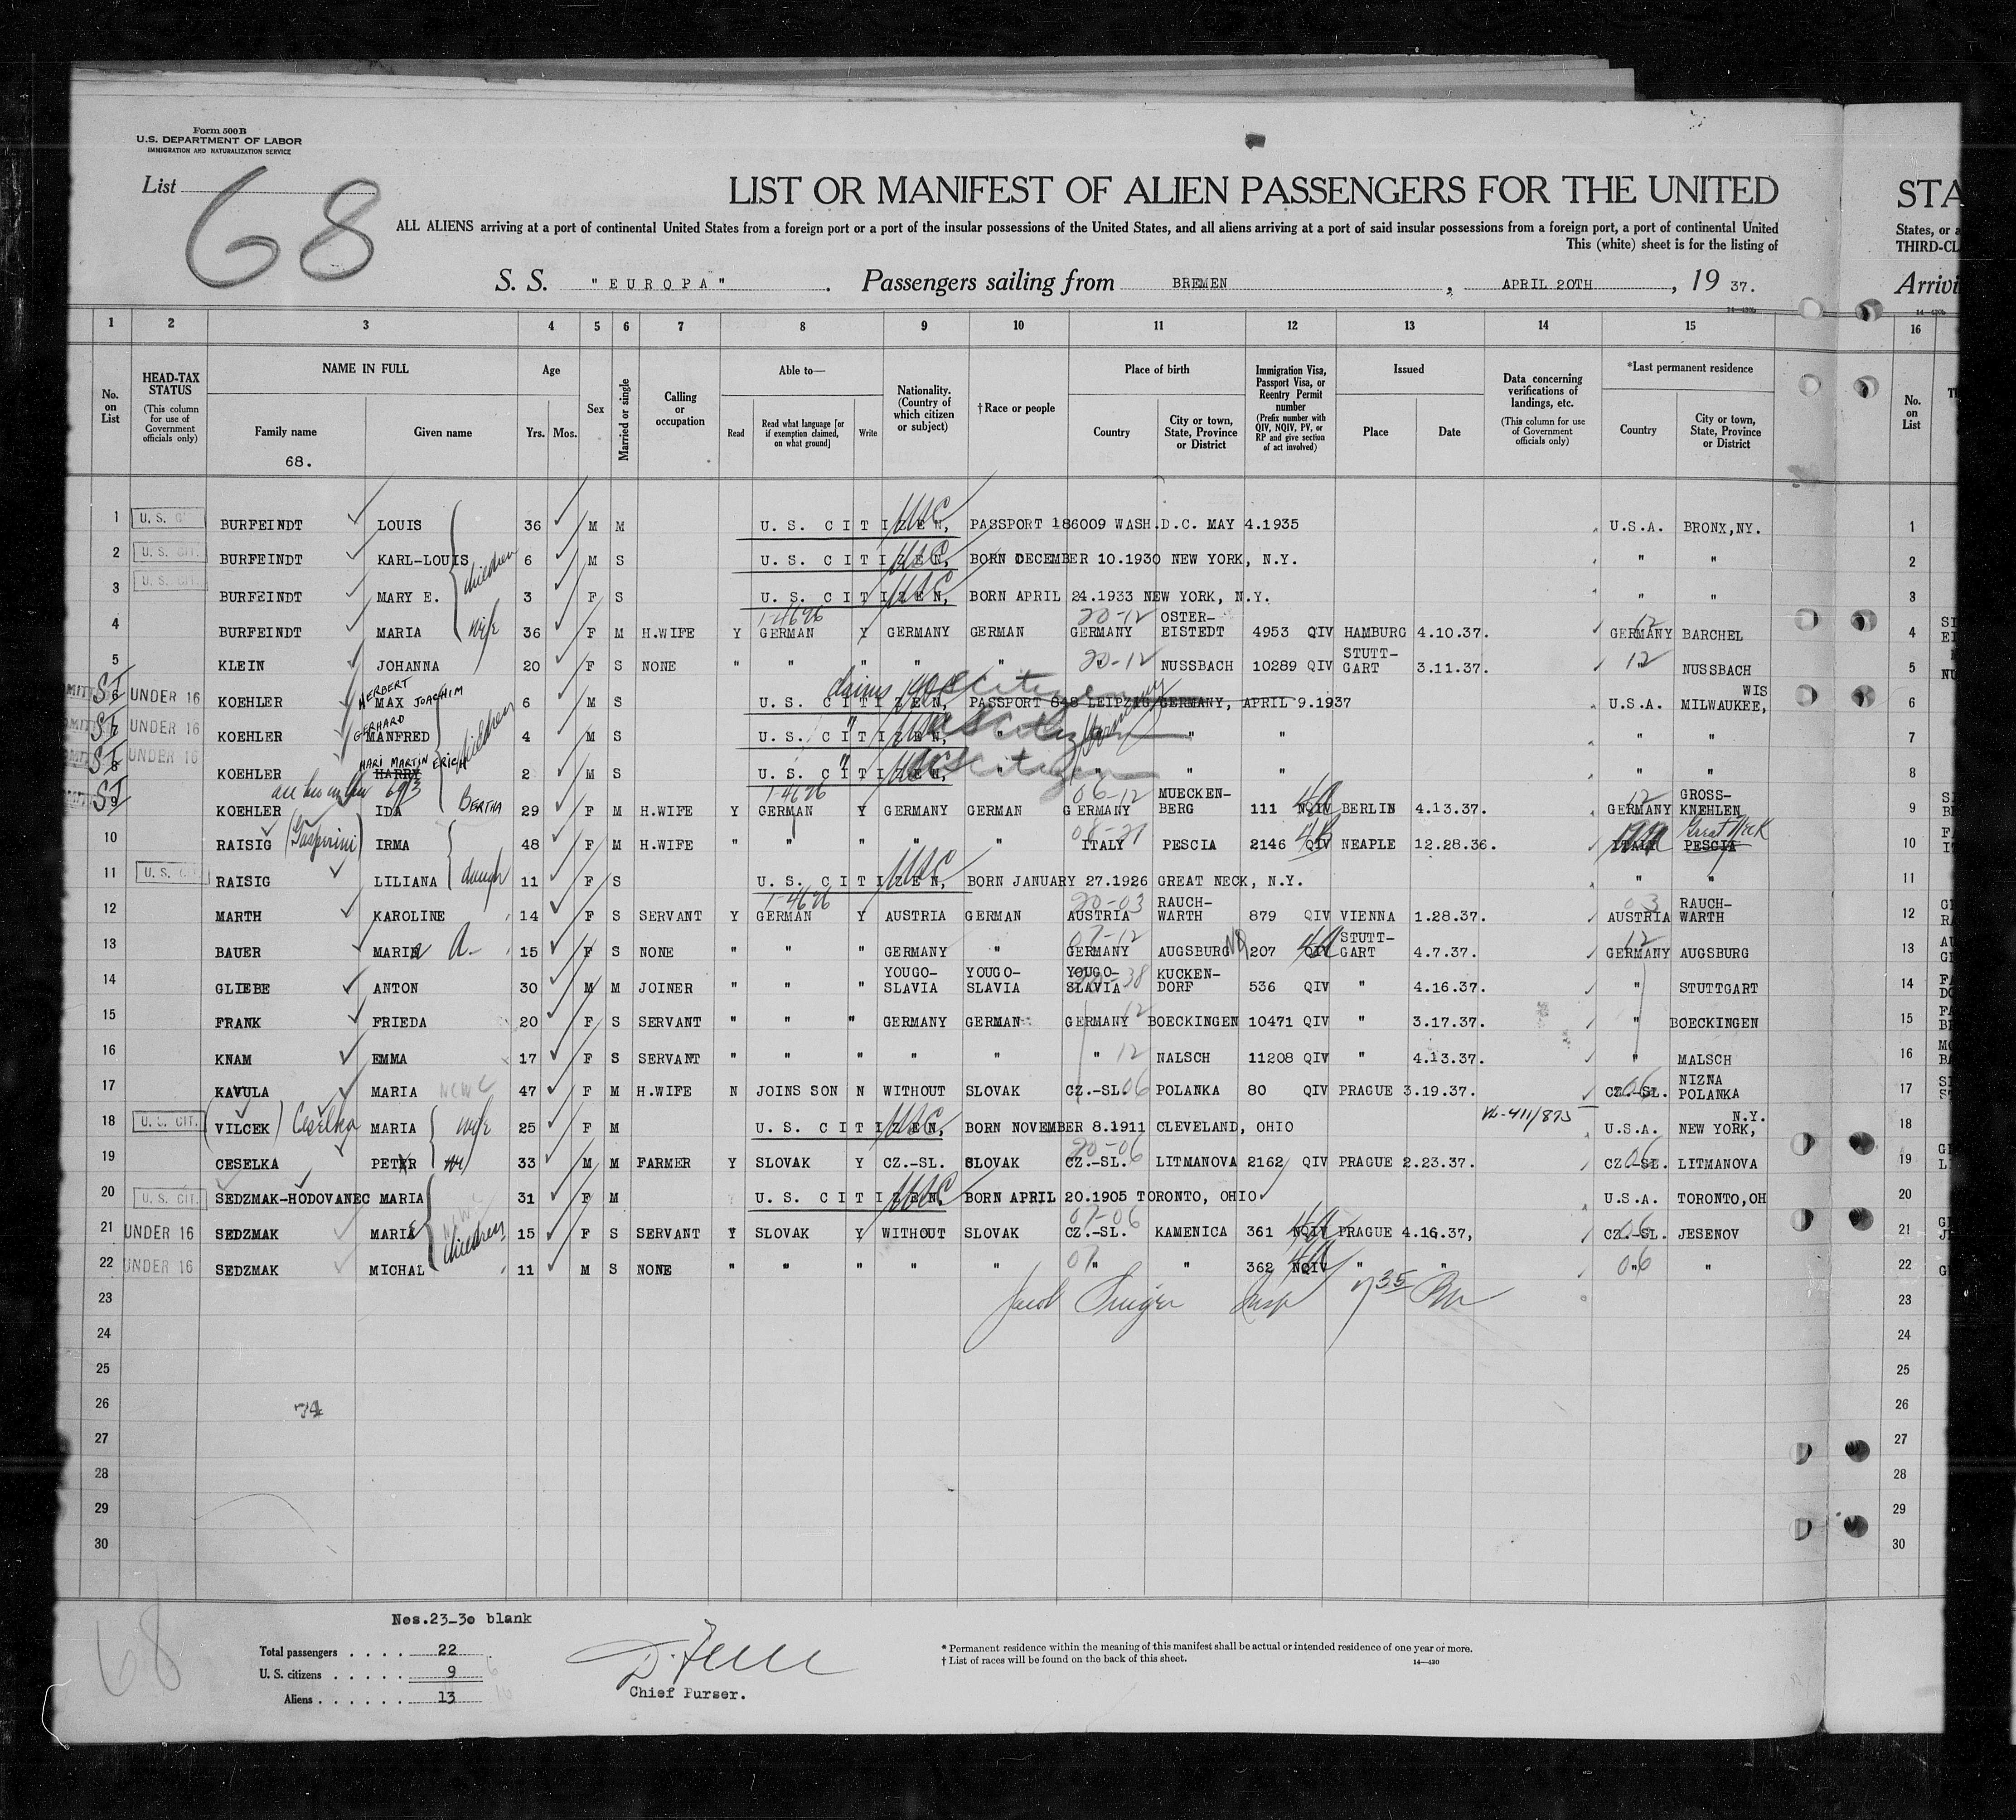 Form 500 B
U.S. DEPARTMENT OF LABOR
IMMIGRATION AND NATURALIZATION SERVICE
List 68
LIST OR MANIFEST OF ALIEN PASSENGERS FOR THE UNITED STA
ALL ALIENS arriving at a port of continental United States from a foreign port or a port of the insular possessions of the United States, and all aliens arriving at a port of said insular possessions from a foreign port, a port of continental United States, or a
This (white) sheet is for the listing of THIRD-CL
S. S. "EUROPA" . Passengers sailing from BREMEN , APRIL 20TH , 19 37. Arrivi
14—430b 14—430b
1 2 3 4 5 6 7 8 9 10 11 12 13 14 15 16
No. on List
HEAD-TAX STATUS (This column for use of Government officials only)
NAME IN FULL
Family name Given name
68.
Age
Yrs. Mos.
Sex
Married or single
Calling or occupation
Able to—
Read Read what language [or if exemption claimed, on what ground] Write
Nationality. (Country of which citizen or subject)
† Race or people
Place of birth
Country City or town, State, Province or District
Immigration Visa, Passport Visa, or Reentry Permit number (Prefix number with QIV, NQIV, PV, or RP and give section of act involved)
Issued
Place Date
Data concerning verifications of landings, etc. (This column for use of Government officials only)
*Last permanent residence
Country City or town, State, Province or District
No. on List
1 U. S. CIT. BURFEINDT LOUIS 36 M M U. S. CITIZEN, USC PASSPORT 186009 WASH.D.C. MAY 4.1935 U.S.A. BRONX,NY. 1
2 U. S. CIT. BURFEINDT KARL-LOUIS children 6 M S U. S. CITIZEN, USC BORN DECEMBER 10.1930 NEW YORK, N.Y. " " 2
3 U. S. CIT. BURFEINDT MARY E. 3 F S U. S. CITIZEN, USC BORN APRIL 24.1933 NEW YORK, N.Y. " " 3
4 BURFEINDT MARIA wife 36 F M H.WIFE Y GERMAN Y GERMANY GERMAN 20-12 GERMANY OSTER-EISTEDT 4953 QIV HAMBURG 4.10.37. 12 GERMANY BARCHEL 4
5 KLEIN JOHANNA 20 F S NONE " " " " " 20-12 " NUSSBACH 10289 QIV STUTT-GART 3.11.37. 12 NUSSBACH 5
SI 6 UNDER 16 KOEHLER HERBERT MAX JOACHIM 6 M S claims US Citizen U. S. CITIZEN, PASSPORT 648 LEIPZIG/GERMANY, APRIL 9.1937 U.S.A. MILWAUKEE, WIS 6
SI 7 UNDER 16 KOEHLER GERHARD MANFRED children 4 M S " U. S. CITIZEN, US Citizen " " " " " 7
SI 8 UNDER 16 KOEHLER HARI MARTIN ERICH HARRY 2 M S " U. S. CITIZEN, US Citizen " " " " " 8
SI 9 KOEHLER IDA BERTHA 29 F M H.WIFE Y GERMAN Y GERMANY GERMAN 06-12 GERMANY MUECKEN-BERG 111 NQIV 4a BERLIN 4.13.37. 12 GERMANY GROSS-KNEHLEN 9
10 RAISIG (Gasperini) IRMA 48 F M H.WIFE " " " " " 08-21 ITALY PESCIA 2146 QIV 4B NEAPLE 12.28.36. ITALY PESCIA Great Neck 10
11 U. S. CIT. RAISIG LILIANA daugh 11 F S U. S. CITIZEN, USC BORN JANUARY 27.1926 GREAT NECK, N.Y. " " 11
12 MARTH KAROLINE 14 F S SERVANT Y GERMAN Y AUSTRIA GERMAN 20-03 AUSTRIA RAUCH-WARTH 879 QIV VIENNA 1.28.37. 03 AUSTRIA RAUCH-WARTH 12
13 BAUER MARIA a- 15 F S NONE " " " GERMANY " 07-12 GERMANY AUGSBURG 207 NQIV 4a STUTT-GART 4.7.37. 12 GERMANY AUGSBURG 13
14 GLIEBE ANTON 30 M M JOINER " " " YOUGO-SLAVIA YOUGO-SLAVIA YOUGO-SLAVIA 38 KUCKEN-DORF 536 QIV " 4.16.37. " STUTTGART 14
15 FRANK FRIEDA 20 F S SERVANT " " " GERMANY GERMAN GERMANY 12 BOECKINGEN 10471 QIV " 3.17.37. " BOECKINGEN 15
16 KNAM EMMA 17 F S SERVANT " " " " " " 12 NALSCH 11208 QIV " 4.13.37. " MALSCH 16
17 KAVULA MARIA 47 F M H.WIFE N JOINS SON N WITHOUT SLOVAK CZ.-SL. 06 POLANKA 80 QIV PRAGUE 3.19.37. 06 CZ.-SL. NIZNA POLANKA 17
18 U. S. CIT. (VILCEK) Ceselka MARIA wife 25 F M U. S. CITIZEN, USC BORN NOVEMBER 8.1911 CLEVELAND, OHIO U.S.A. NEW YORK, N.Y. 18
19 CESELKA PETER 33 M M FARMER Y SLOVAK Y CZ.-SL. SLOVAK 20-06 CZ.-SL. LITMANOVA 2162 QIV PRAGUE 2.23.37. 06 CZ.-SL. LITMANOVA 19
20 U. S. CIT. SEDZMAK-HODOVANEC MARIA 31 F M U. S. CITIZEN, USC BORN APRIL 20.1905 TORONTO, OHIO U.S.A. TORONTO,OH 20
21 UNDER 16 SEDZMAK MARIE children 15 F S SERVANT Y SLOVAK Y WITHOUT SLOVAK 07-06 CZ.-SL. KAMENICA 361 NQIV 4a PRAGUE 4.16.37, 06 CZ.-SL. JESENOV 21
22 UNDER 16 SEDZMAK MICHAL 11 M S NONE " " " " " 07 " " 362 NQIV 4a " " 06 " " 22
23 Jacob Insp 7 35 PM 23
24 24
25 25
26 74 26
27 27
28 28
29 29
30 30
Nos.23-30 blank
Total passengers . . . . 22
U. S. citizens . . . . . 9
Aliens . . . . . . 13
Chief Purser.
* Permanent residence within the meaning of this manifest shall be actual or intended residence of one year or more.
† List of races will be found on the back of this sheet.
14—430
68